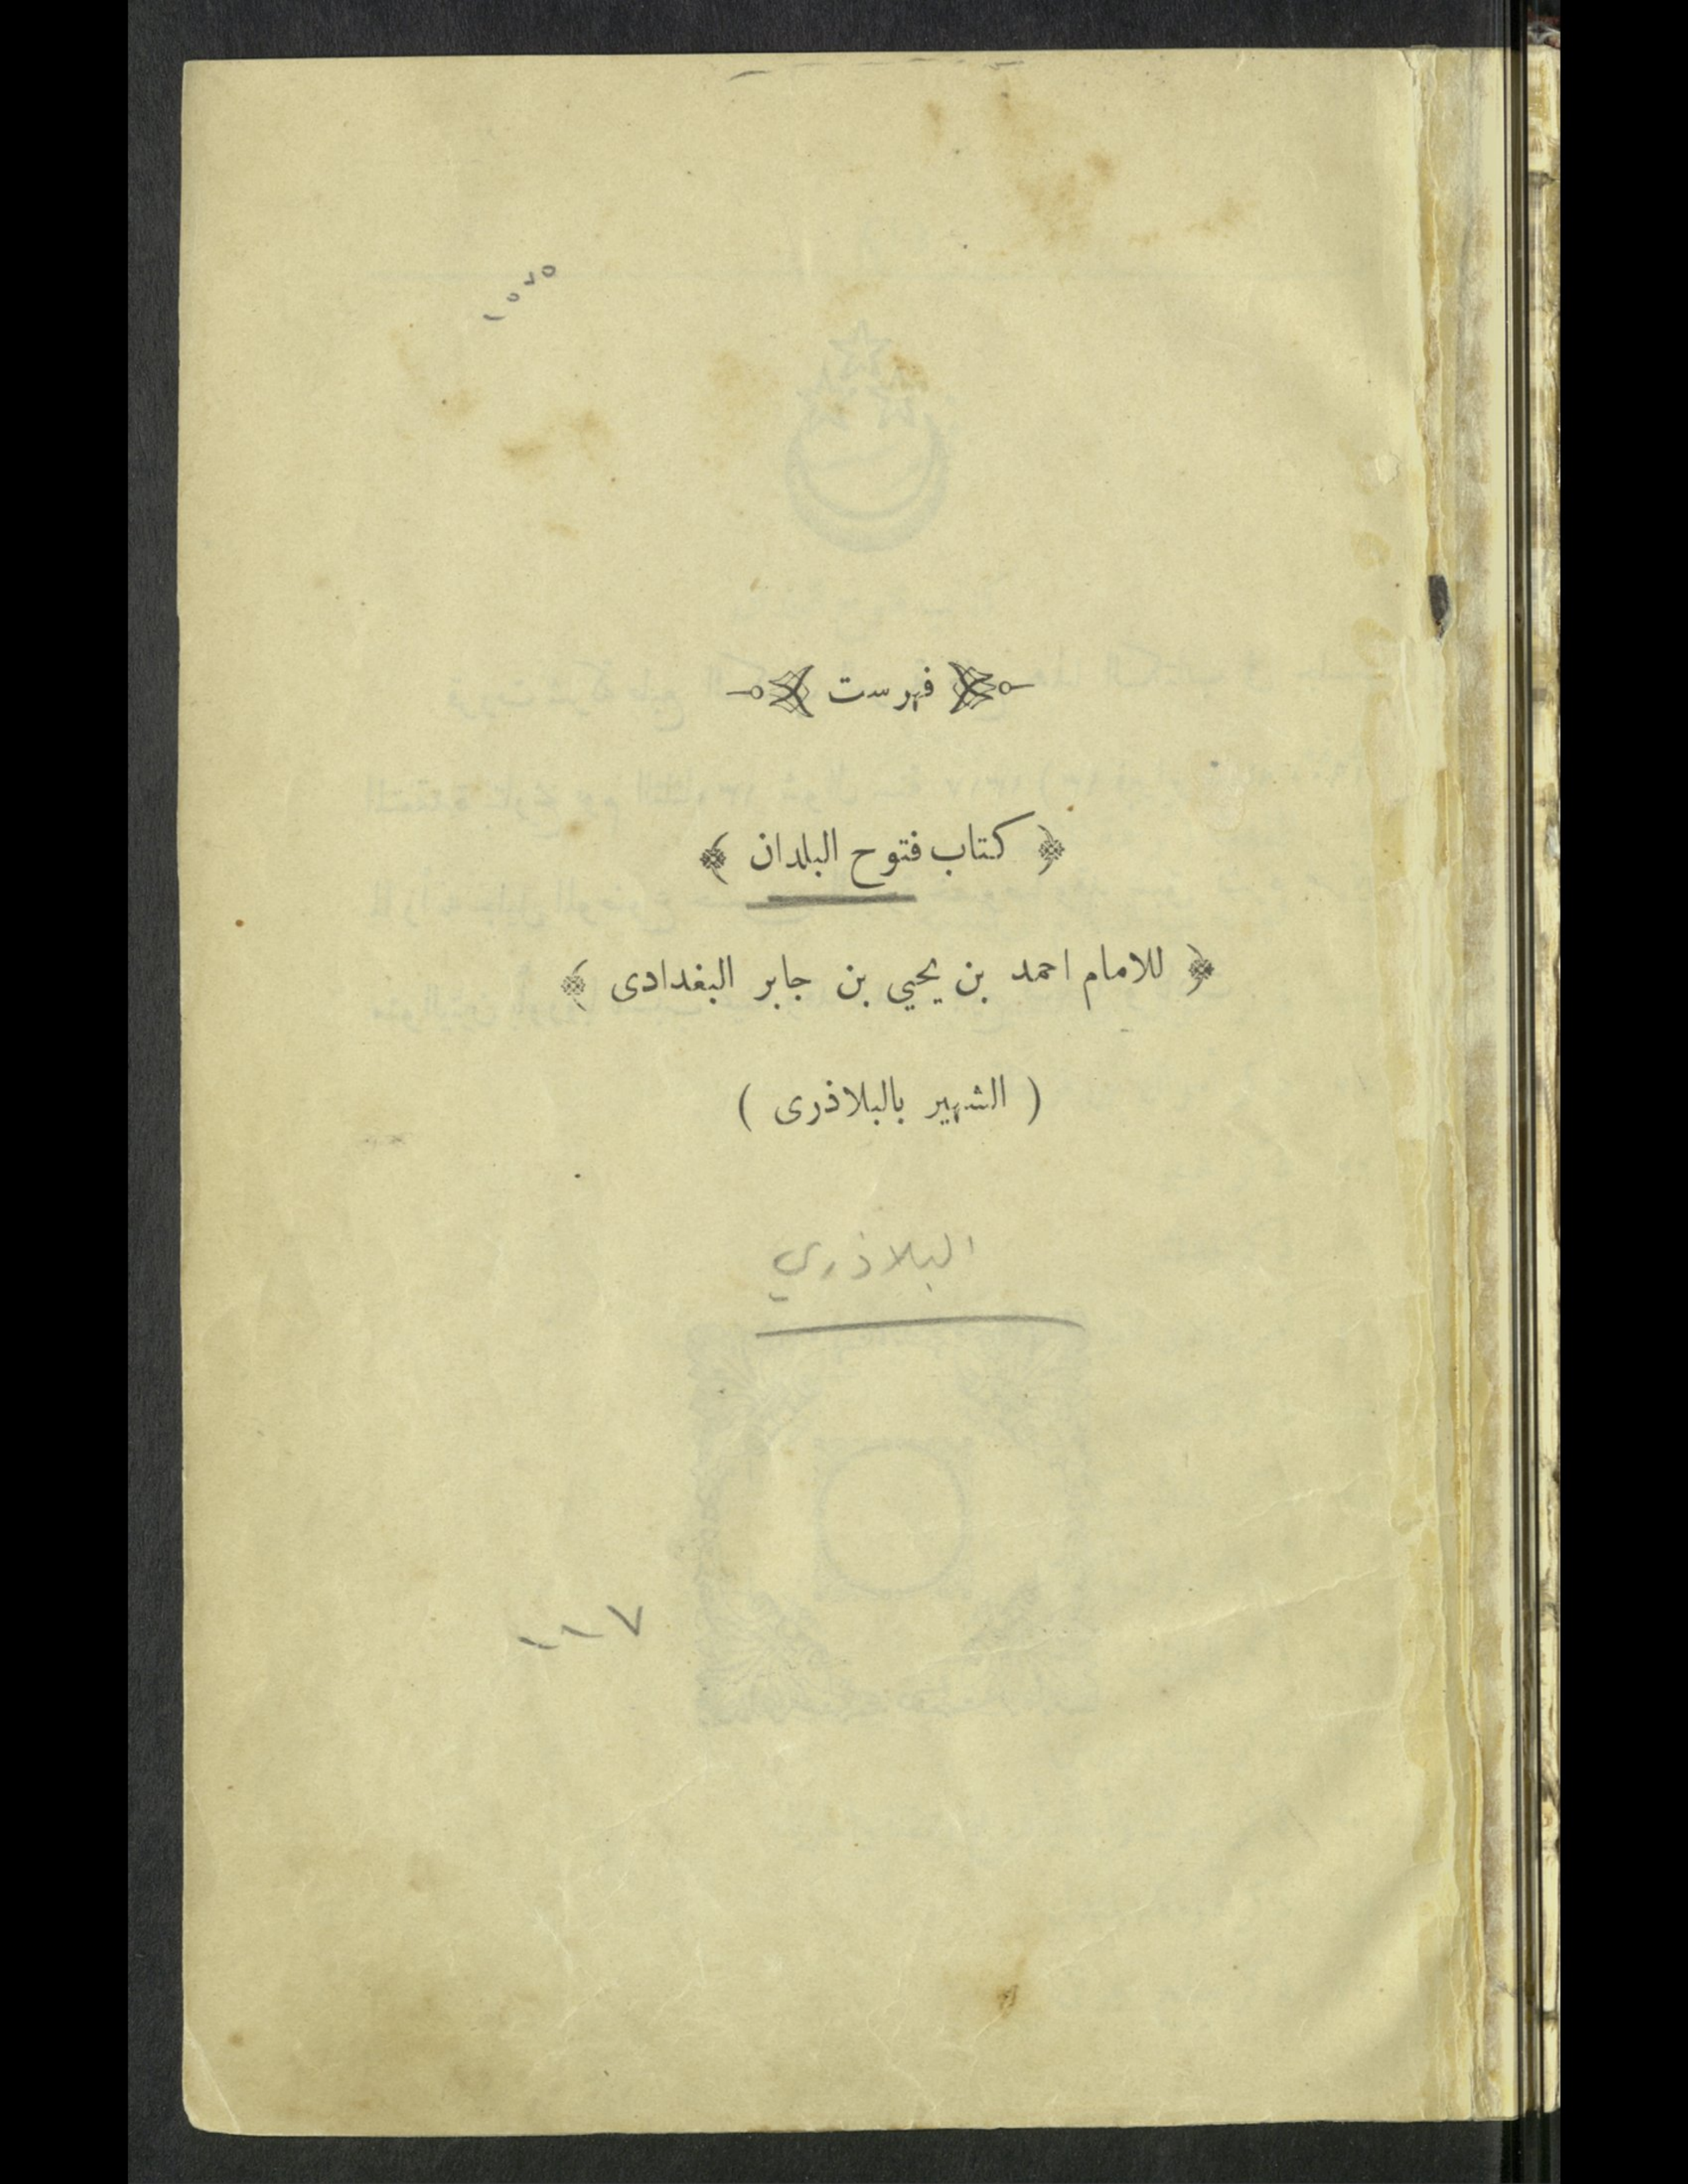 فهرست
﴿ كتاب فتوح البلدان ﴾
﴿ للامام احمد بن يحيى بن جابر البغدادى ﴾
( الشهير بالبلاذرى )
البلاذري
١١٧